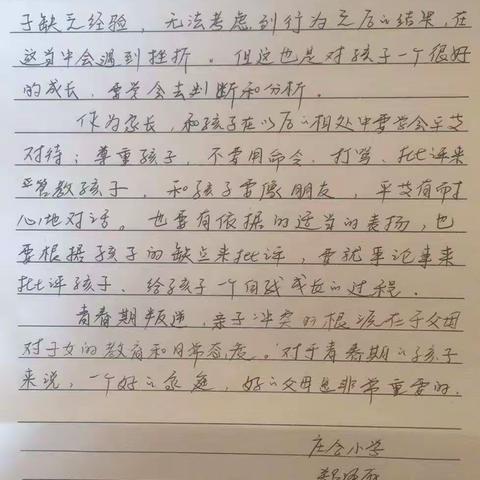 于缺乏经验，无法考虑到行为之后的结果，在
这当中会遇到挫折。但这也是对孩子一个很好
的成长，要学会去判断和分析。
作为家长，和孩子在以后的相处中要学会平等
对待；尊重孩子，不要用命令、打骂、批评来
严管教孩子，和孩子要像朋友，平等有耐
心地对话。也要有依据的适当的表扬，也
要根据孩子的缺点来批评，要就事论事来
批评孩子，给孩子一个自我成长的过程。
青春期叛逆，亲子冲突的根源在于父母
对子女的教育和日常态度。对于青春期的孩子
来说，一个好的家庭，好的父母是非常重要的。
庄合小学